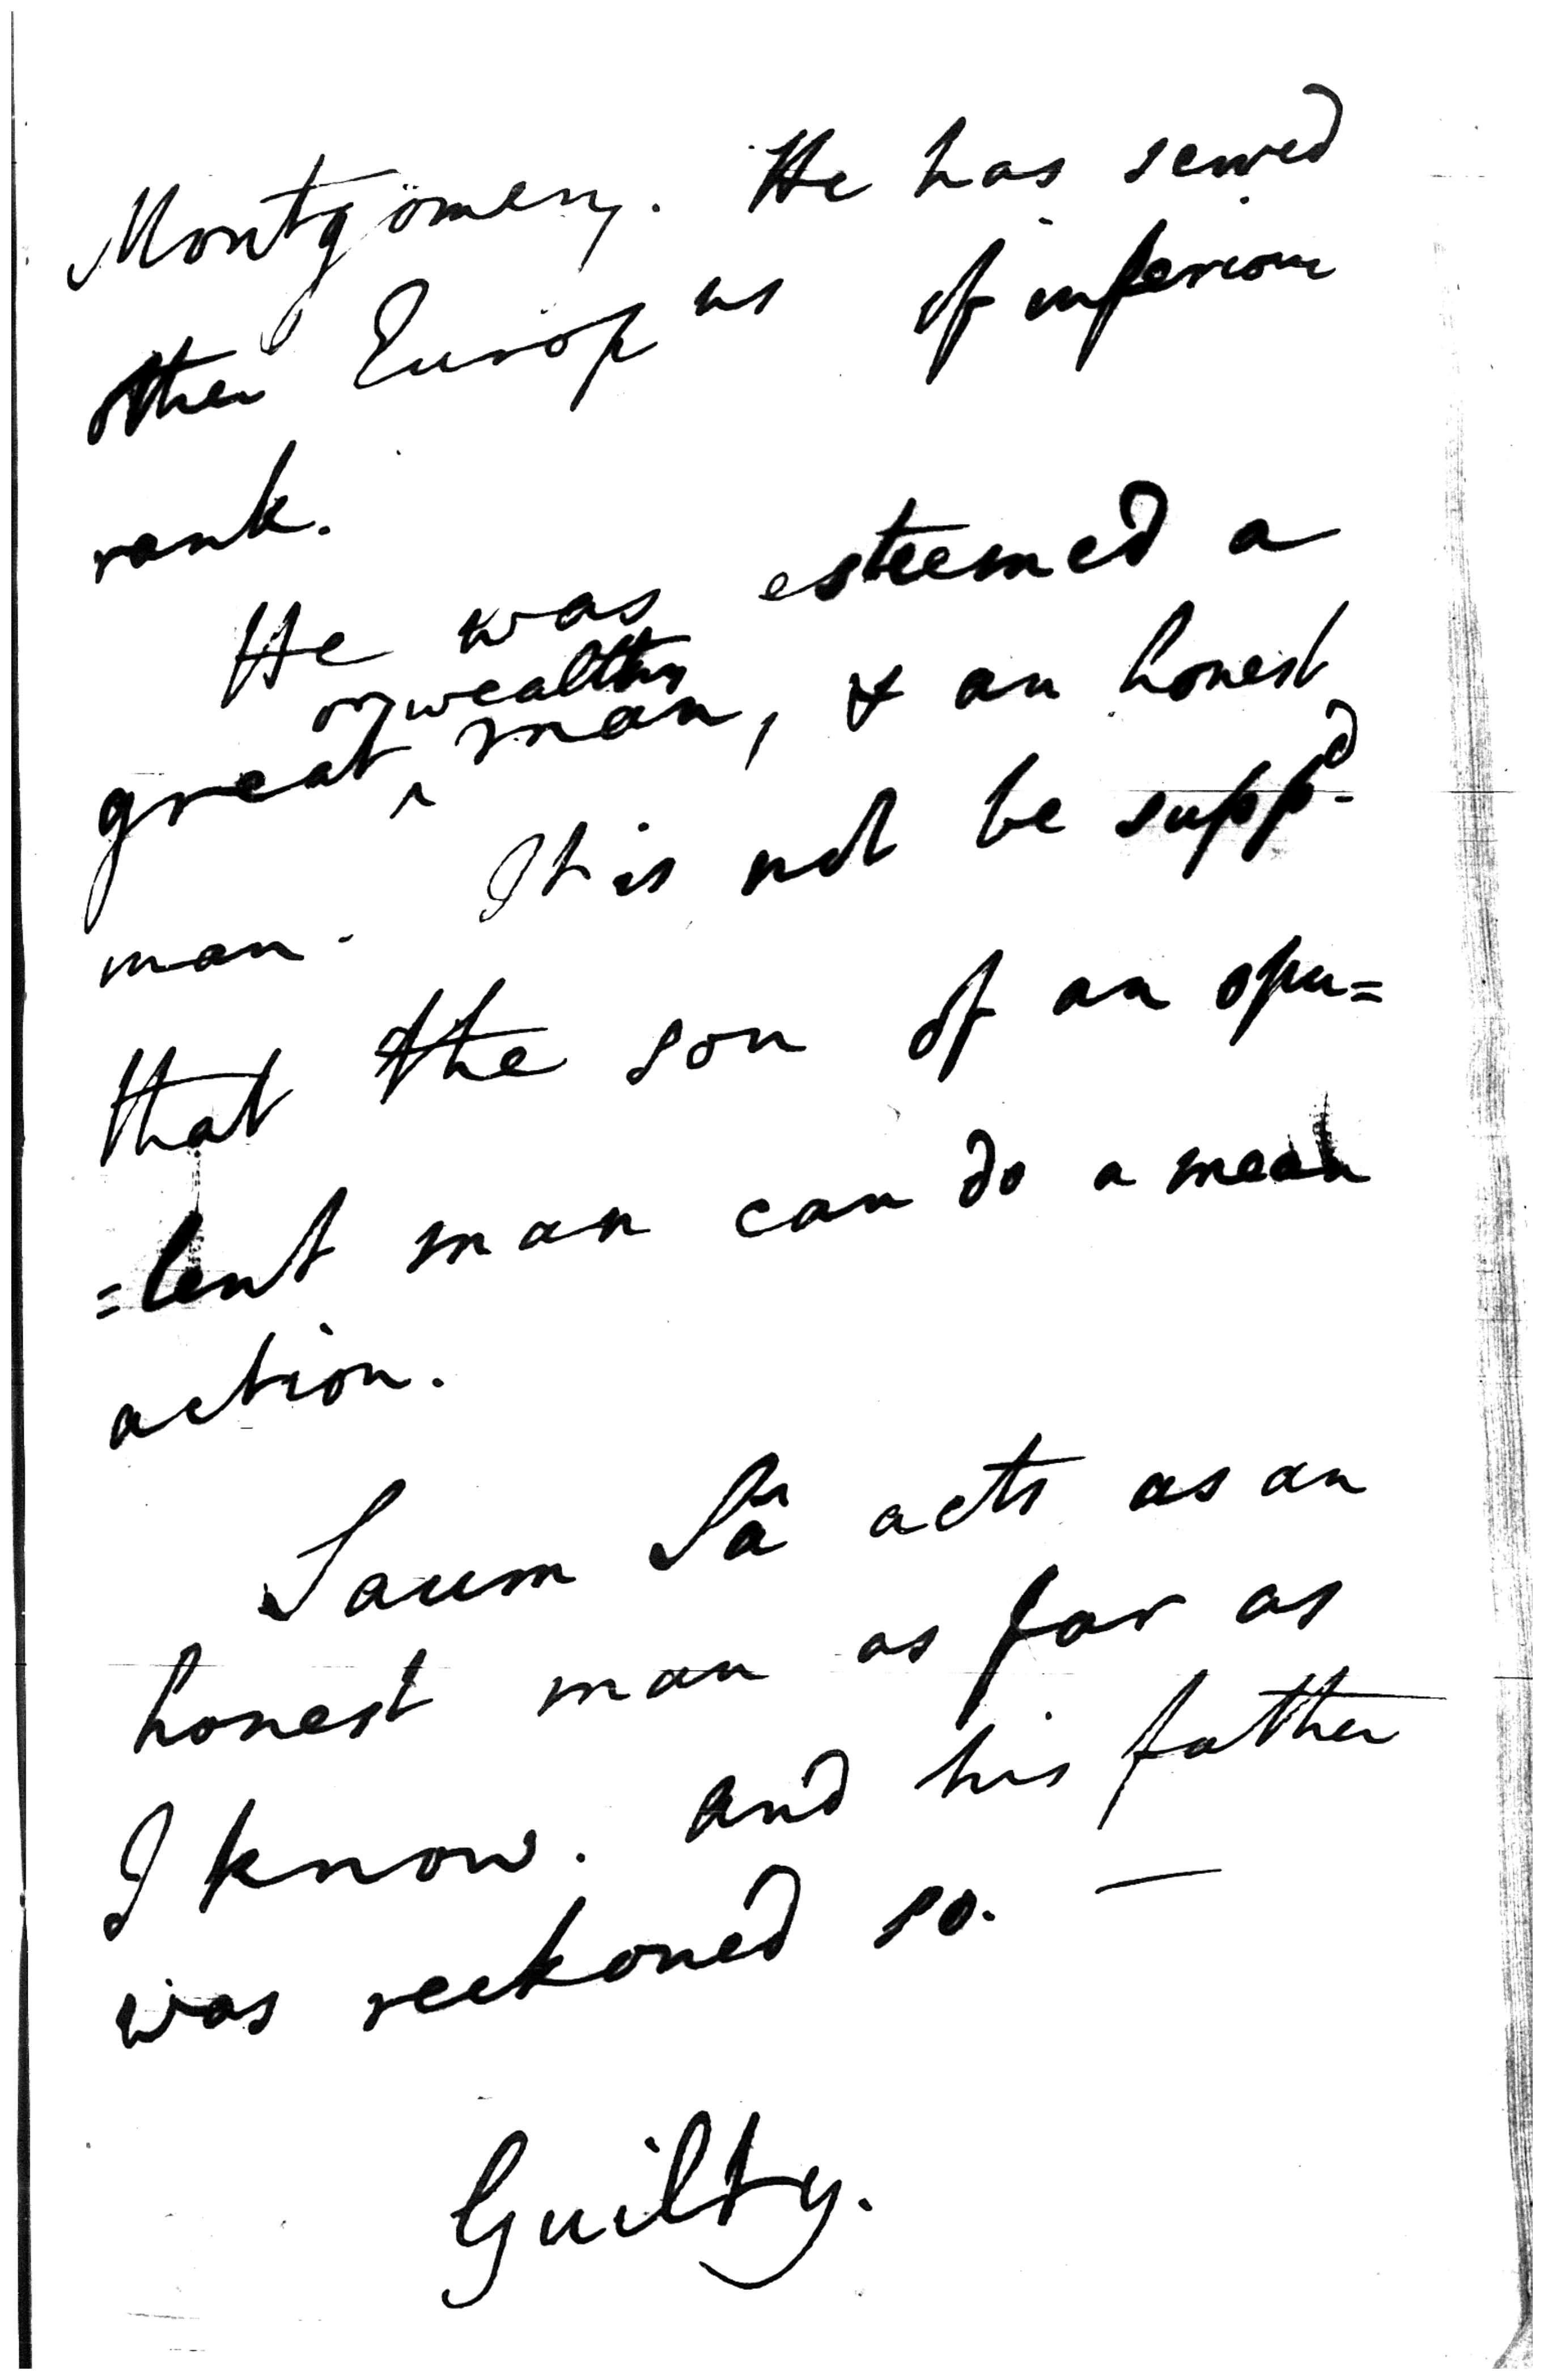 Montgomery. He has served
other Europ as of inferiour
rank.
He was esteemed a
or wealthy
great ^ man, & an honest
man. It is not be supp.d
that the son of an opu=
=lent man can do a mean
action.
Saum Sâ acts as an
honest man as far as
I know. and his father
was reckoned so. —
Guilty.